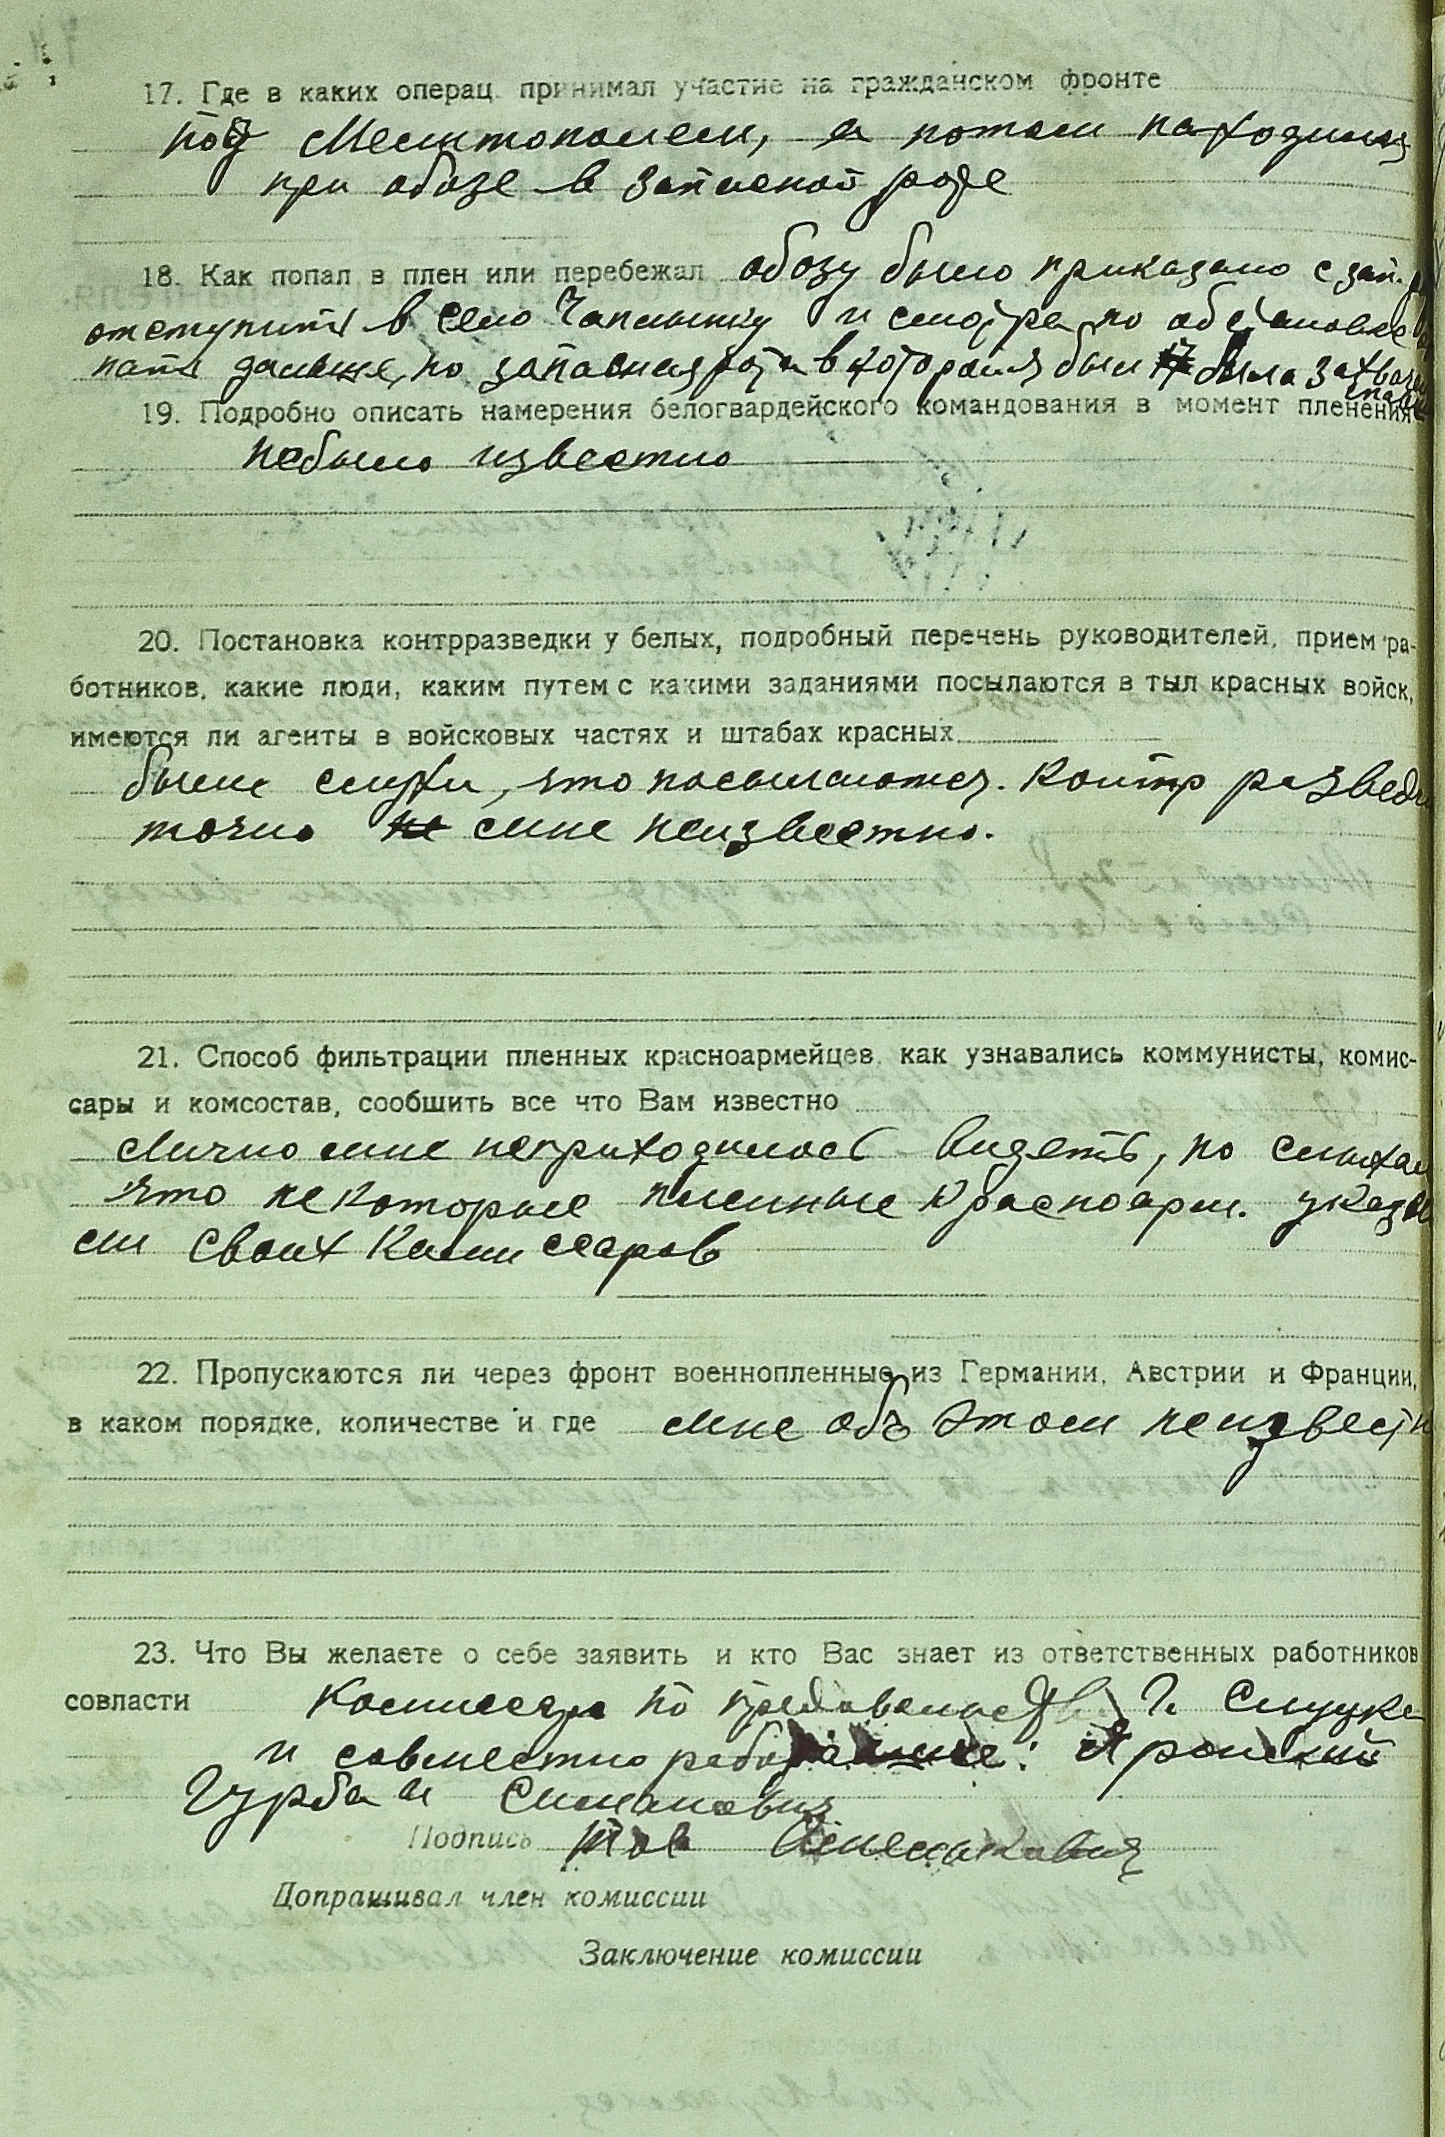 17. Где в каких операц. принимал участие на гражданском фронте
под Мелитополем, а потом находился
при обозе в запасной роте
18. Как попал в плен или перебежал обозу было приказано с зап.
отступить в село Чаплынку и смотря по обстановке
дальше, но запасная рота в которой я был была захвачена
19. Подробно описать намерения белогвардейского командования в момент пленения
небыло известно
20. Постановка контрразведки у белых, подробный перечень руководителей, прием ра-
ботников, какие люди, каким путем с какими заданиями посылаются в тыл красных войск,
имеются ли агенты в войсковых частях и штабах красных
были слухи, что посылаются. контр разведч
точно мне неизвестно.
21. Способ фильтрации пленных красноармейцев, как узнавались коммунисты, комис-
сары и комсостав, сообщить все что Вам известно
Лично мне неприходилось видеть, но слыхал
что некоторые пленные красноарм. указыва
ли своих комиссаров
22. Пропускаются ли через фронт военнопленные из Германии, Австрии и Франции,
в каком порядке, количестве и где мне об этом неизвестн
23. Что Вы желаете о себе заявить и кто Вас знает из ответственных работников
совласти комиссар по г. Слуцке
и совместно
Гурба и
Подпись
Допрашивал член комиссии
Заключение комиссии